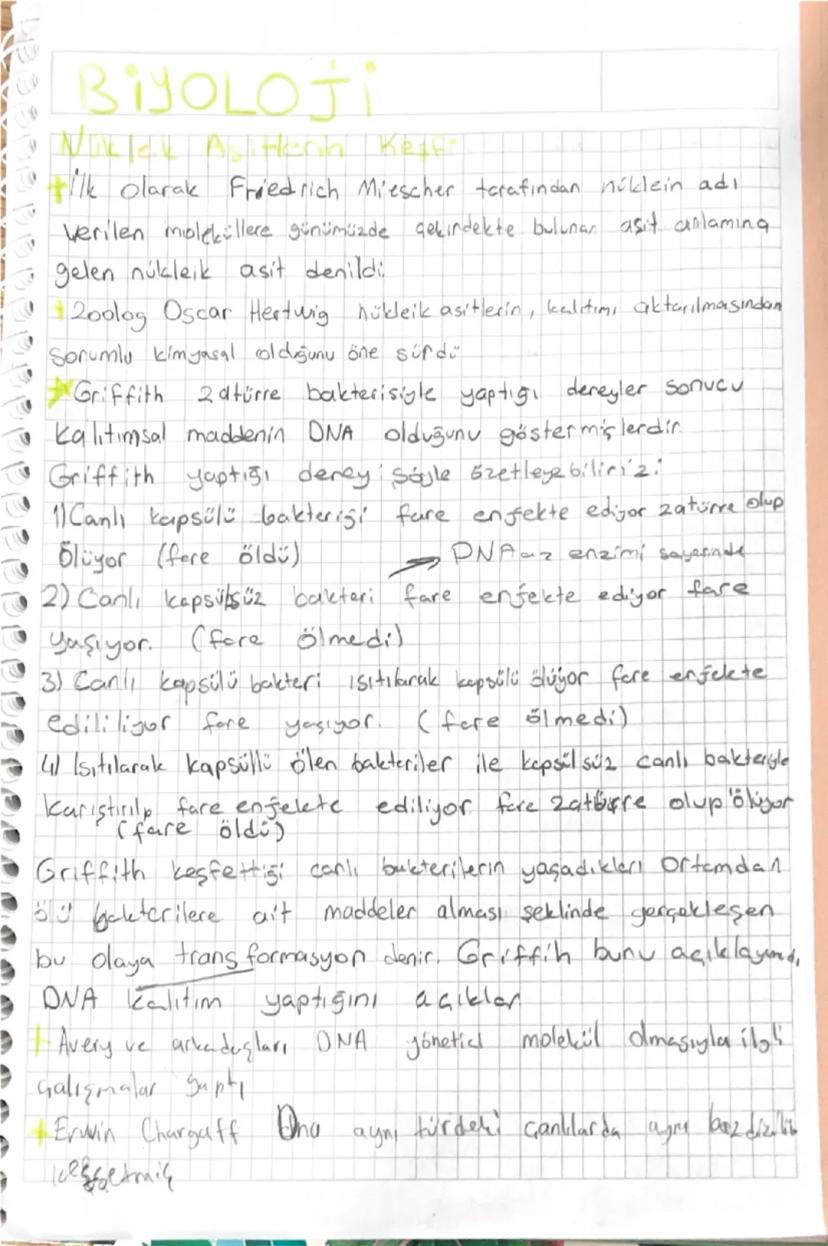 BİYOLOJİ
Nükleik Asitlerin Keşfi
+ İlk olarak Friedrich Miescher tarafından nüklein adı
verilen moleküllere günümüzde çekirdekte bulunan asit anlamına
gelen nükleik asit denildi.
+ Zoolog Oscar Hertwig nükleik asitlerin, kalıtımı aktarılmasından
sorumlu kimyasal olduğunu öne sürdü
Griffith zatürre bakterisiyle yaptığı deneyler sonucu
kalıtımsal maddenin DNA olduğunu göstermişlerdir
Griffith yaptığı deneyi şöyle özetleyebiliriz:
1) Canlı kapsülü bakterisi fare enfekte ediyor zatürre olup
Ölüyor (fare öldü) → DNAaz enzimi sayesinde
2) Canlı kapsülsüz bakteri fare enfekte ediyor fare
yaşıyor. (fare ölmedi)
3) Canlı kapsülü bakteri ısıtılarak kapsülü ölüyor fare enfekte
edililiyor fare yaşıyor. (fare ölmedi)
4) Isıtılarak kapsüllü ölen bakteriler ile kapsülsüz canlı bakteriyle
Karıştırılıp fare enfekte ediliyor fare zatürre olup ölüyor
(fare öldü)
Griffith keşfettiği canlı bakterilerin yaşadıkları ortamdan
ölü bakterilere ait maddeler alması şeklinde gerçekleşen
bu olaya transformasyon denir. Griffih bunu açıklayamadı,
DNA kalıtım yaptığını açıklar
+ Avery ve arkadaşları DNA yönetici molekül olmasıyla ilgili
çalışmalar yaptı
+ Erwin Chargaff Dna aynı türdeki canlılarda aynı baz dizilib
keşfetmiş